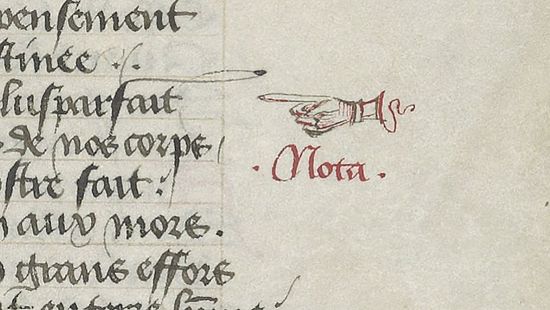 pensement
stinee
plusparfait
de nos corps
stre fait :
Nota .
aux mors .
grans effors